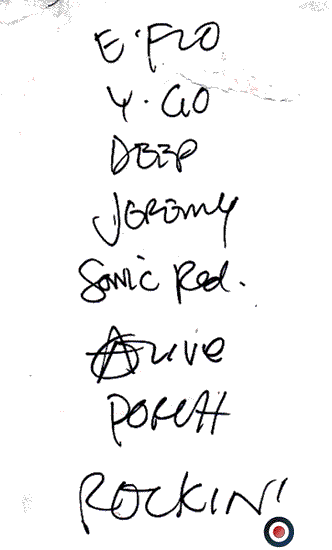 E·FLO
Y·GO
DEEP
JEREMY
Sonic Red.
Alive
PORCH
ROCKIN'